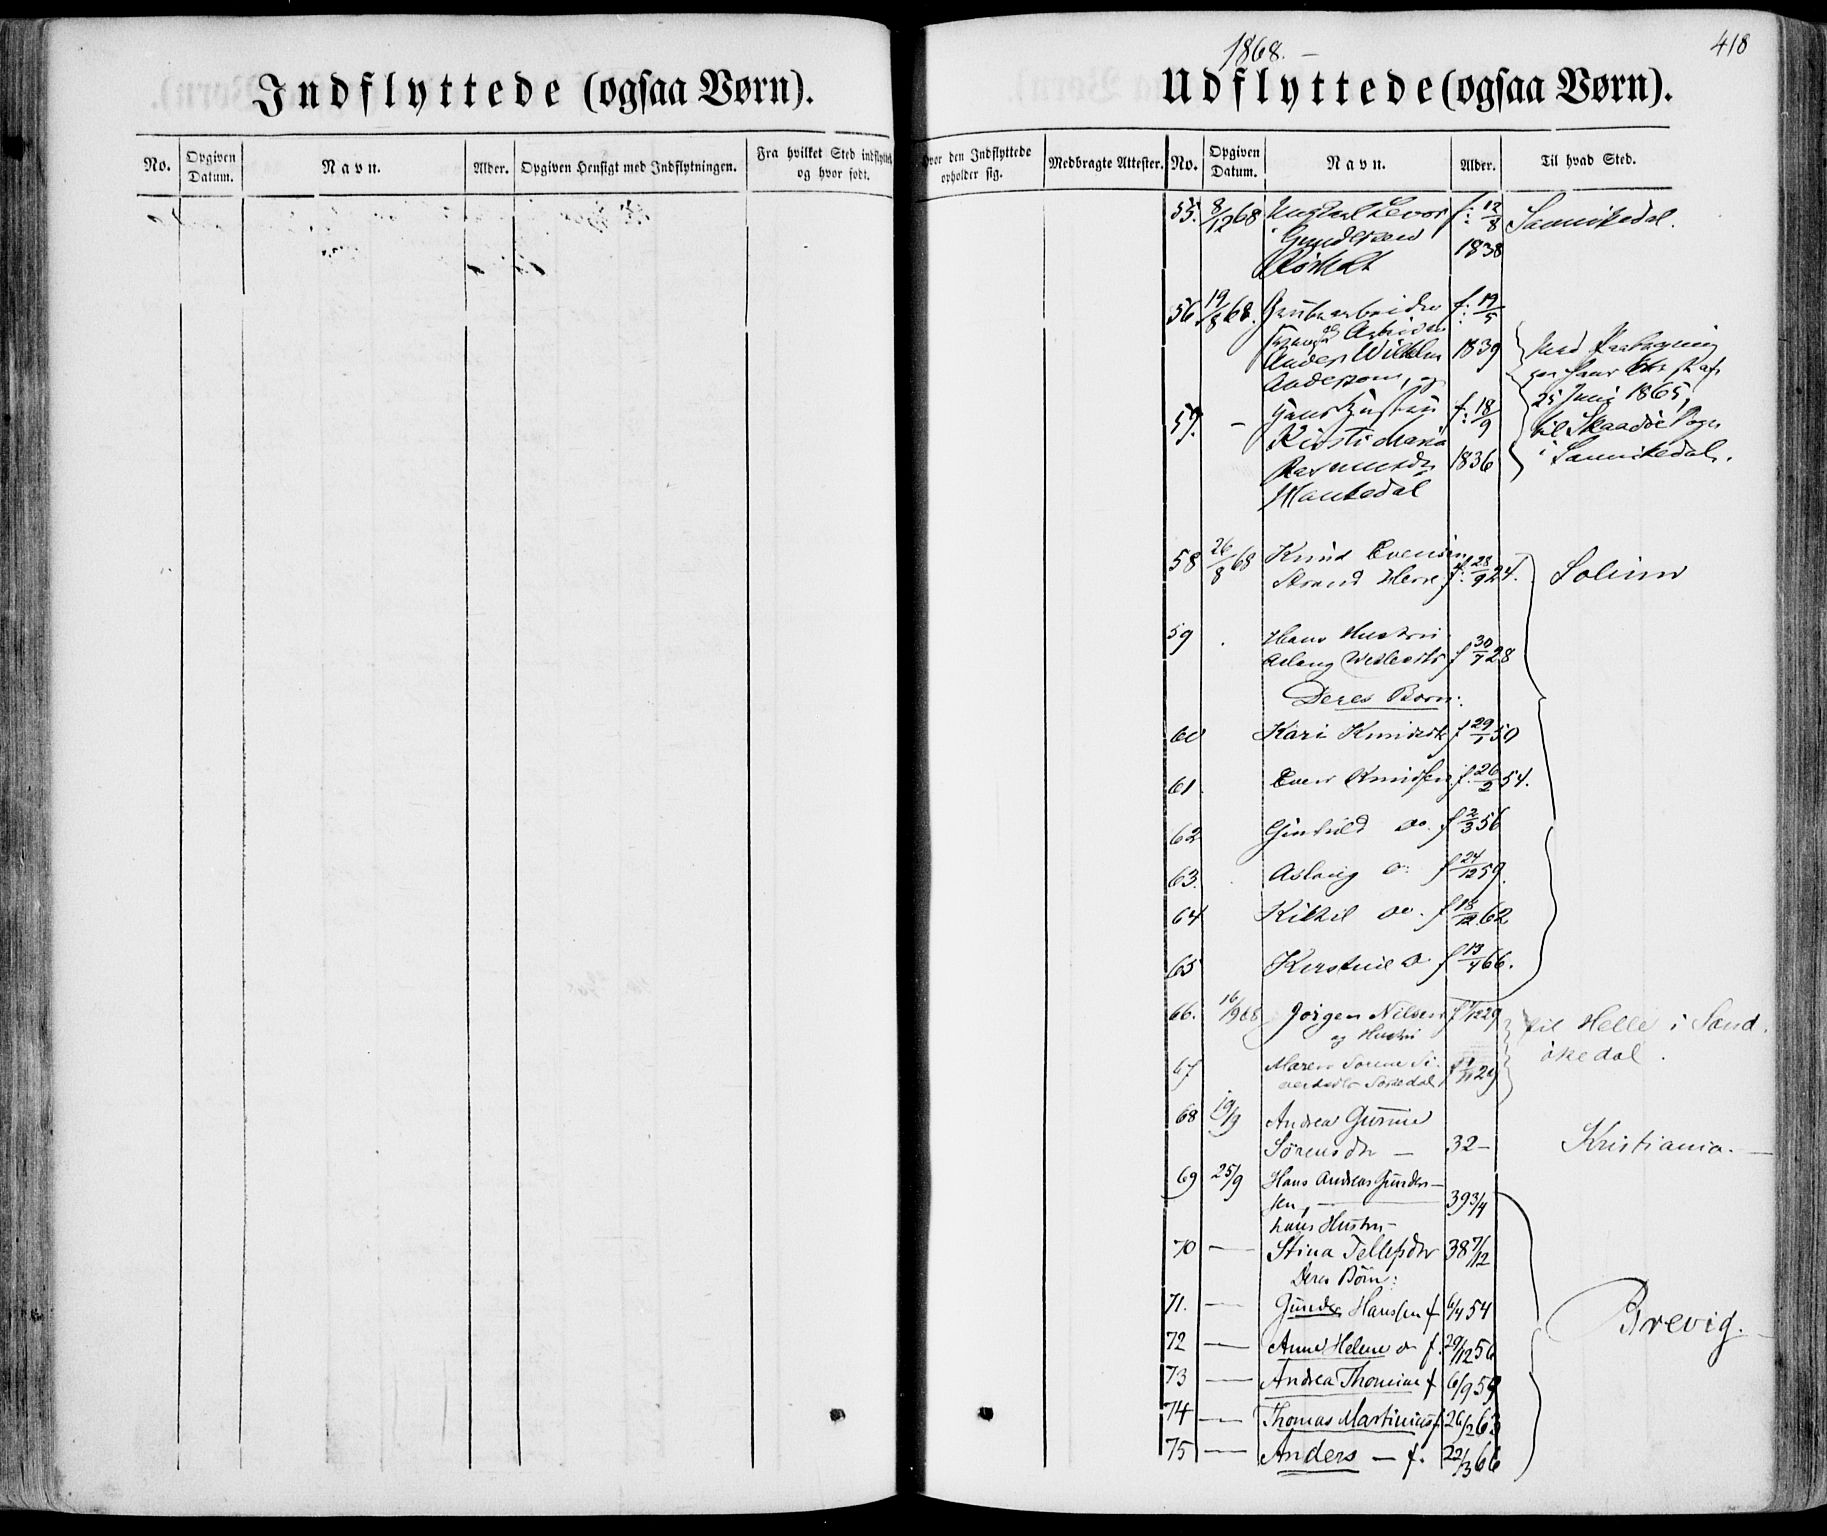 1868. –
418
Indflyttede (ogsaa Børn).
Udflyttede (ogsaa Børn).
No.
Opgiven Datum.
Navn.
Alder.
Opgiven Hensigt med Indflytningen.
Fra hvilket Sted indflyttet og hvor født.
Hvor den Indflyttede opholder sig.
Medbragte Attester.
No.
Opgiven Datum.
Navn.
Alder.
Til hvad Sted.
55. 8/12 68 Ungkarl f: 12/8 Sannikedal.
Gundersen 1838
56 19/8 68. Grubearbeider f: 19/5
Anders Wilhelm 1839
Andersson, og
25 Juni 1865,
57. – Hans Hustru f: 18/9 til Skaadøe Sogn
Kirsti Maria i Sannikedal.
Rasmusdr 1836
58 26/8 68 Knud Evensen
Strand Herre f: 28/9 24. Solum
59 . Hans Hustru
Aslaug f 30/7 28
Deres Børn:
60 Kari Knudsdtr f 29/1 50
61. Even Knudsen f. 26/2 54.
62 Gunhild do. f 2/3 56
63. Aslaug do f 24/12 59.
64 Kittil do. f 18/12 62
65 do f 13/4 66.
66. 16/9 68 Jørgen Nilsen til Helle i Sand
og Hustru
67 Maren økedal.
68 19/9 Andrea Gurine
Sørensdr – 32 – Kristiania. –
69 25/9 Hans Andreas Gunder–
sen, – 39 3/4
hans Hustru –
70 – Stina Tellefsdr 38 7/12
Deres Børn:
71. – Gunder Hanssen f 6/4 54
Brevig.
72 – Anne Helene do f. 29/12 56
73 – Andrea Thomine f 6/9 59
74 – Thomas Martinius f 26/2 63
75 – Anders – f. 22/3 66